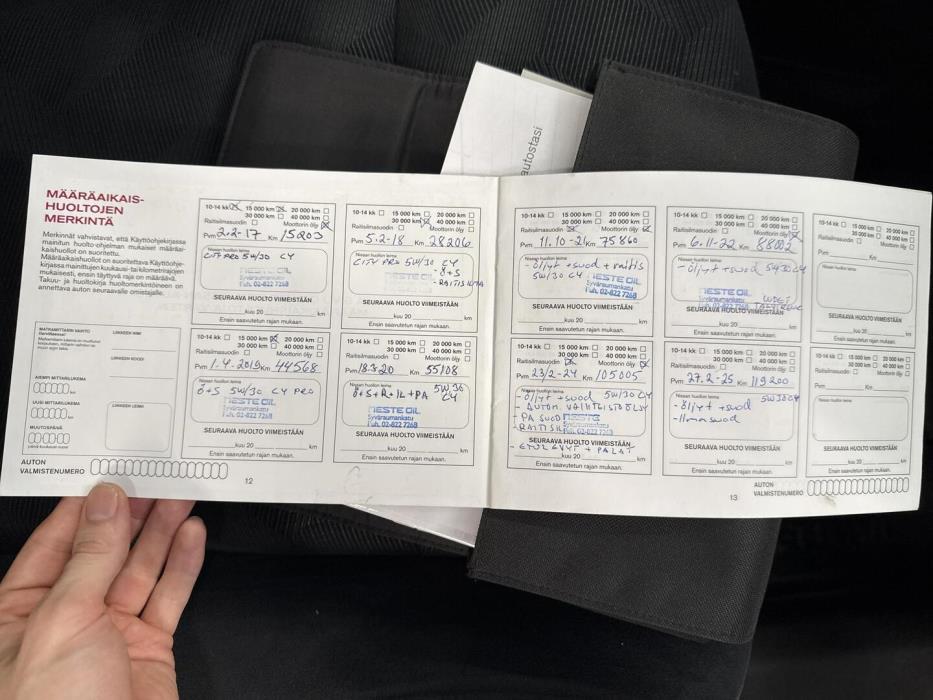 autostasi
MÄÄRÄAIKAIS-
HUOLTOJEN
MERKINTÄ
Merkinnät vahvistavat, että Käyttöohjekirjassa
mainitun huolto-ohjelman mukaiset määräai-
kaishuollot on suoritettu.
Määräaikaishuollot on suoritettava Käyttöohje-
kirjassa mainittujen kuukausi- tai kilometrirajojen
mukaisesti, ensin täyttyvä raja on määräävä.
Takuu- ja huoltokirja huoltomerkintöineen on
annettava auton seuraavalle omistajalle.
MATKAMITTARIN VAIHTO
LIIKKEEN NIMI
LIIKKEEN KOODI
AIEMPI MITTARILUKEMA
km
UUSI MITTARILUKEMA
LIIKKEEN LEIMA
km
MUUTOSPÄIVÄ
AUTON
VALMISTENUMERO
10-14 kk 15 000 km 20 000 km
30 000 km 40 000 km
Raitisilmasuodin Moottorin öljy
Pvm 2-2-17 Km 15203
Nissan huollon leima
CITY PRO 5W/30 C4
NESTE OIL
Syväraumankatu
Puh. 02-822 7268
SEURAAVA HUOLTO VIIMEISTÄÄN
kuu 20 km
Ensin saavutetun rajan mukaan.
10-14 kk 15 000 km 20 000 km
30 000 km 40 000 km
Raitisilmasuodin Moottorin öljy
Pvm 5-2-18 Km 28206
Nissan huollon leima
CITY PRO 5W/30 C4
- ö+S
NESTE OIL
SEURAAVA HUOLTO VIIMEISTÄÄN
kuu 20 km
Ensin saavutetun rajan mukaan.
10-14 kk 15 000 km 20 000 km
30 000 km 40 000 km
Raitisilmasuodin Moottorin öljy
Pvm 1-4-2019 Km 44568
Nissan huollon leima
ö+S 5W/30 C4 PRO
NESTE OIL
Syväraumankatu
Puh. 02-822 7268
SEURAAVA HUOLTO VIIMEISTÄÄN
kuu 20 km
Ensin saavutetun rajan mukaan.
10-14 kk 15 000 km 20 000 km
30 000 km 40 000 km
Raitisilmasuodin Moottorin öljy
Pvm 20 Km 55108
Nissan huollon leima
5W30
ö+S+R+IL+PA C4
NESTE OIL
Syväraumankatu
Puh. 02-822 7268
SEURAAVA HUOLTO VIIMEISTÄÄN
kuu 20 km
Ensin saavutetun rajan mukaan.
12
10-14 kk 15 000 km 20 000 km
30 000 km 40 000 km
Raitisilmasuodin Moottorin öljy
Pvm 11.10-21 Km 75860
Nissan huollon leima
- öljyt + suod + raitis
5W/30 C4
NESTE OIL
Syväraumankatu
Puh. 02-822 7268
SEURAAVA HUOLTO VIIMEISTÄÄN
kuu 20 km
Ensin saavutetun rajan mukaan.
10-14 kk 15 000 km 20 000 km
30 000 km 40 000 km
Raitisilmasuodin Moottorin öljy
Pvm 6-11-22 Km 88002
Nissan huollon leima
- öljyt + suod 5W30 C4
NESTE OIL
Syväraumankatu
Puh. 02-822 7268
SEURAAVA HUOLTO VIIMEISTÄÄN
kuu 20 km
Ensin saavutetun rajan mukaan.
10-14 kk 15 000 km 20 000 km
30 000 km 40 000 km
Raitisilmasuodin Moottorin öljy
Pvm Km
Nissan huollon leima
SEURAAVA HUOLTO VIIMEISTÄÄN
kuu 20 km
Ensin saavutetun rajan mukaan.
10-14 kk 15 000 km 20 000 km
30 000 km 40 000 km
Raitisilmasuodin Moottorin öljy
Pvm 23/2-24 Km 105005
Nissan huollon leima
- öljyt + suod 5W/30 C4
- AUTOM. VAIHTEISTOÖLJY
- PA SUOD
- RAITISILMA
NESTE OIL
Syväraumankatu
Puh. 02-822 7268
SEURAAVA HUOLTO VIIMEISTÄÄN
- ETULEVYT + PALAT
kuu 20 km
Ensin saavutetun rajan mukaan.
10-14 kk 15 000 km 20 000 km
30 000 km 40 000 km
Raitisilmasuodin Moottorin öljy
Pvm 27.2-25 Km 119200
Nissan huollon leima
5W30 C4
- öljyt + suod
- ilmasuod
SEURAAVA HUOLTO VIIMEISTÄÄN
kuu 20 km
Ensin saavutetun rajan mukaan.
10-14 kk 15 000 km 20 000 km
30 000 km 40 000 km
Raitisilmasuodin Moottorin öljy
Pvm Km
Nissan huollon leima
SEURAAVA HUOLTO VIIMEISTÄÄN
kuu 20 km
Ensin saavutetun rajan mukaan.
13
AUTON
VALMISTENUMERO